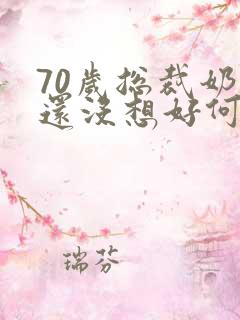 70歲总裁奶
還没想好何
瑞芬